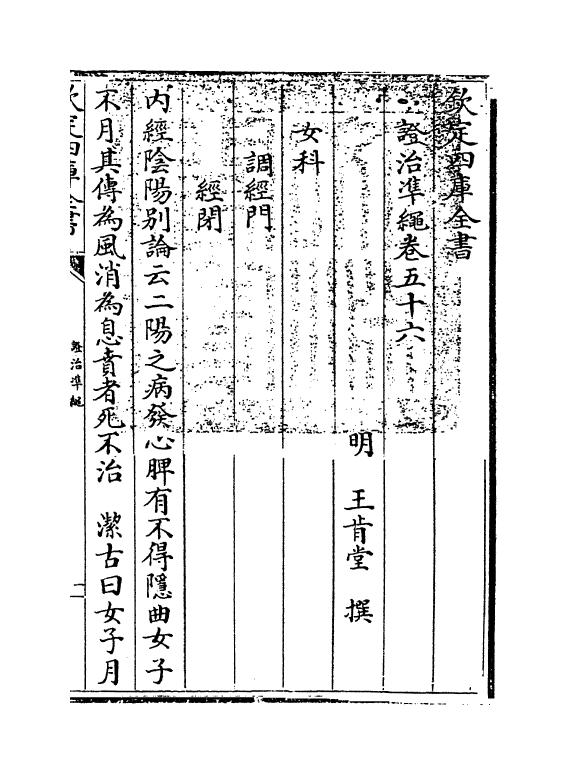 欽定四庫全書
證治凖繩卷五十六
明 王肯堂 撰
女科
調經門
經閉
内經陰陽别論云二陽之病發心脾有不得隱曲女子
不月其傳為風消為息賁者死不治 潔古曰女子月
欽定四庫全書
證治凖繩
二